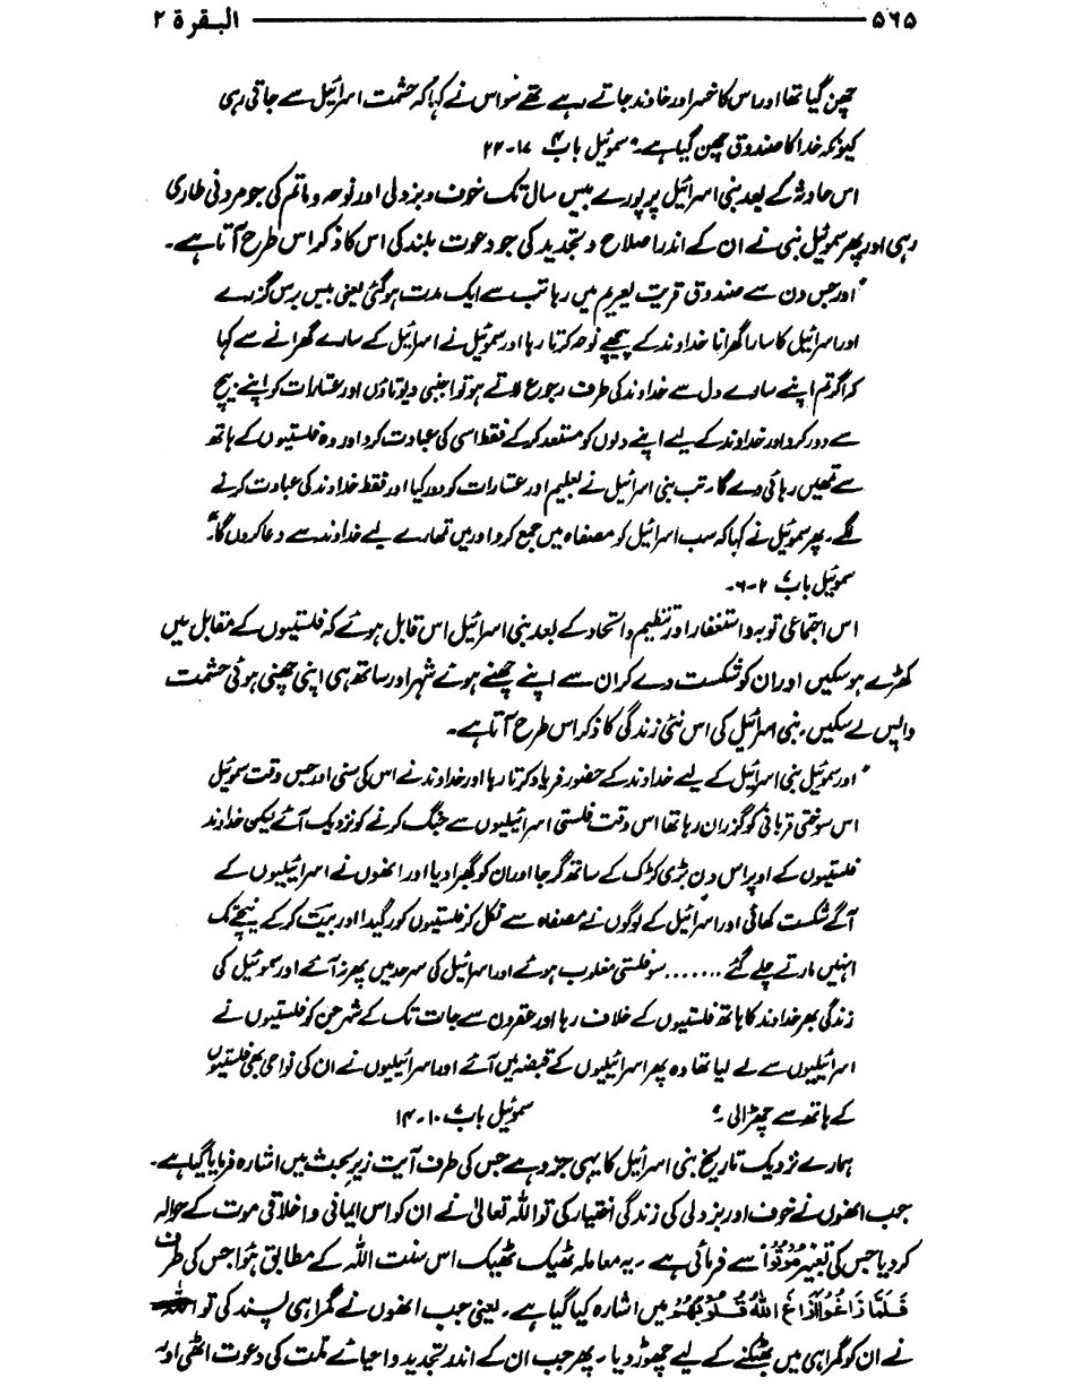 ۵۶۵ البقرة ۲
چھن گیا تھا اور اس کا خسر اور خاوند جاتے رہے تھے سو اس نے کہا کہ حشمت اسرائیل سے جاتی رہی
کیونکہ خدا کا صندوق چھن گیا ہے" سموئیل باب ۴ ۱۷-۲۲
اس حادثہ کے بعد بنی اسرائیل پر پورے بیس سال تک خوف و بزدلی اور نوحہ و ماتم کی جو مردنی طاری
رہی اور پھر سموئیل نبی نے ان کے اندر اصلاح و تجدید کی جو دعوت بلند کی اس کا ذکر اس طرح آتا ہے۔
"اور جس دن سے صندوق قریت یعریم میں رہا تب سے ایک مدت ہو گئی یعنی بیس برس گزرے
اور اسرائیل کا سارا گھرانا خداوند کے پیچھے نوحہ کرتا رہا اور سموئیل نے اسرائیل کے سارے گھرانے سے کہا
کہ اگر تم اپنے سارے دل سے خداوند کی طرف رجوع لاتے ہو تو اجنبی دیوتاؤں اور عستارات کو اپنے بیچ
سے دور کرو اور خداوند کے لیے اپنے دلوں کو مستعد کر کے فقط اسی کی عبادت کرو اور وہ فلستیوں کے ہاتھ
سے تمہیں رہائی دے گا۔ تب بنی اسرائیل نے بعلیم اور عستارات کو دور کیا اور فقط خداوند کی عبادت کرنے
لگے۔ پھر سموئیل نے کہا کہ سب اسرائیل کو مصفاہ میں جمع کرو اور میں تمہارے لیے خداوند سے دعا کروں گا"۔
سموئیل باب ۷ ۲-۶۔
اس اجتماعی توبہ و استغفار اور تنظیم و اتحاد کے بعد بنی اسرائیل اس قابل ہوئے کہ فلستیوں کے مقابل میں
کھڑے ہو سکیں اور ان کو شکست دے کر ان سے اپنے چھنے ہوئے شہر اور ساتھ ہی اپنی چھنی ہوئی حشمت
واپس لے سکیں۔ بنی اسرائیل کی اس نئی زندگی کا ذکر اس طرح آتا ہے۔
"اور سموئیل بنی اسرائیل کے لیے خداوند کے حضور فریاد کرتا رہا اور خداوند نے اس کی سنی اور جس وقت سموئیل
اس سوختنی قربانی کو گزران رہا تھا اس وقت فلستی اسرائیلیوں سے جنگ کرنے کو نزدیک آئے لیکن خداوند
فلستیوں کے اوپر اس دن بڑی کڑک کے ساتھ گرجا اور ان کو گھبرا دیا اور انھوں نے اسرائیلیوں کے
آگے شکست کھائی اور اسرائیل کے لوگوں نے مصفاہ سے نکل کر فلستیوں کو رگیدا اور بیت کر کے نیچے تک
انہیں مارتے چلے گئے ....... سو فلستی مغلوب ہوئے اور اسرائیل کی سرحد میں پھر نہ آئے اور سموئیل کی
زندگی بھر خداوند کا ہاتھ فلستیوں کے خلاف رہا اور عقرون سے جات تک کے شہر جن کو فلستیوں نے
اسرائیلیوں سے لے لیا تھا وہ پھر اسرائیلیوں کے قبضہ میں آئے اور اسرائیلیوں نے ان کی نواحی بھی فلستیوں
کے ہاتھ سے چھڑا لی۔" سموئیل باب ۷ ۱۰-۱۴
ہمارے نزدیک تاریخ بنی اسرائیل کا یہی جزو ہے جس کی طرف آیت زیر بحث میں اشارہ فرمایا گیا ہے۔
جب انھوں نے خوف اور بزدلی کی زندگی اختیار کی تو اللہ تعالیٰ نے ان کو اس ایمانی و اخلاقی موت کے حوالہ
کر دیا جس کی تعبیر مُوْتُوْا سے فرمائی ہے۔ یہ معاملہ ٹھیک ٹھیک اس سنت اللہ کے مطابق ہوا جس کی طرف
فَلَمَّا زَاغُوْا اَزَاغَ اللهُ قُلُوْبَهُمْ میں اشارہ کیا گیا ہے۔ یعنی جب انھوں نے گمراہی پسند کی تو اللہ
نے ان کو گمراہی میں بھٹکنے کے لیے چھوڑ دیا۔ پھر جب ان کے اندر تجدید و احیائے ملت کی دعوت اٹھی اور